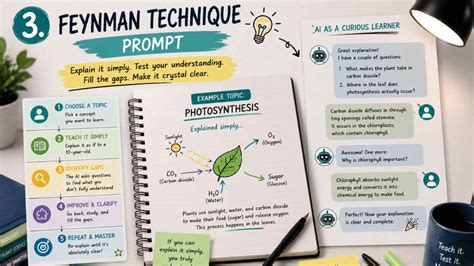 3.
FEYNMAN TECHNIQUE
PROMPT
Explain it simply. Test your understanding.
Fill the gaps. Make it crystal clear.
1 CHOOSE A TOPIC
Pick a concept
you want to learn.
2 TEACH IT SIMPLY
Explain it as if to a
10-year-old.
3 IDENTIFY GAPS
The AI asks questions
to find what you
don't fully understand.
4 IMPROVE & CLARIFY
Go back, study, and
fill the gaps.
5 REPEAT & MASTER
Re-explain until it's
absolutely clear!
EXAMPLE TOPIC:
PHOTOSYNTHESIS
Explained simply...
Sunlight
O₂
(Oxygen)
CO₂
(Carbon dioxide)
Sugar
(Glucose)
H₂O
(Water)
Plants use sunlight, water, and carbon dioxide
to make their food (sugar) and release oxygen.
This process happens in the leaves.
If you can
explain it
simply, you
truly
AI AS A CURIOUS LEARNER
Great explanation!
I have a couple of questions:
1. What makes the plant take in
carbon dioxide?
2. Where in the leaf does
photosynthesis actually occur?
Carbon dioxide diffuses in through
tiny openings called stomata.
It occurs in the chloroplasts,
which contain chlorophyll.
Awesome! One more:
Why is chlorophyll important?
Chlorophyll absorbs sunlight
energy and converts it into
chemical energy to make food.
Perfect! Now your explanation
is clear and complete.
Teach it.
Test it.